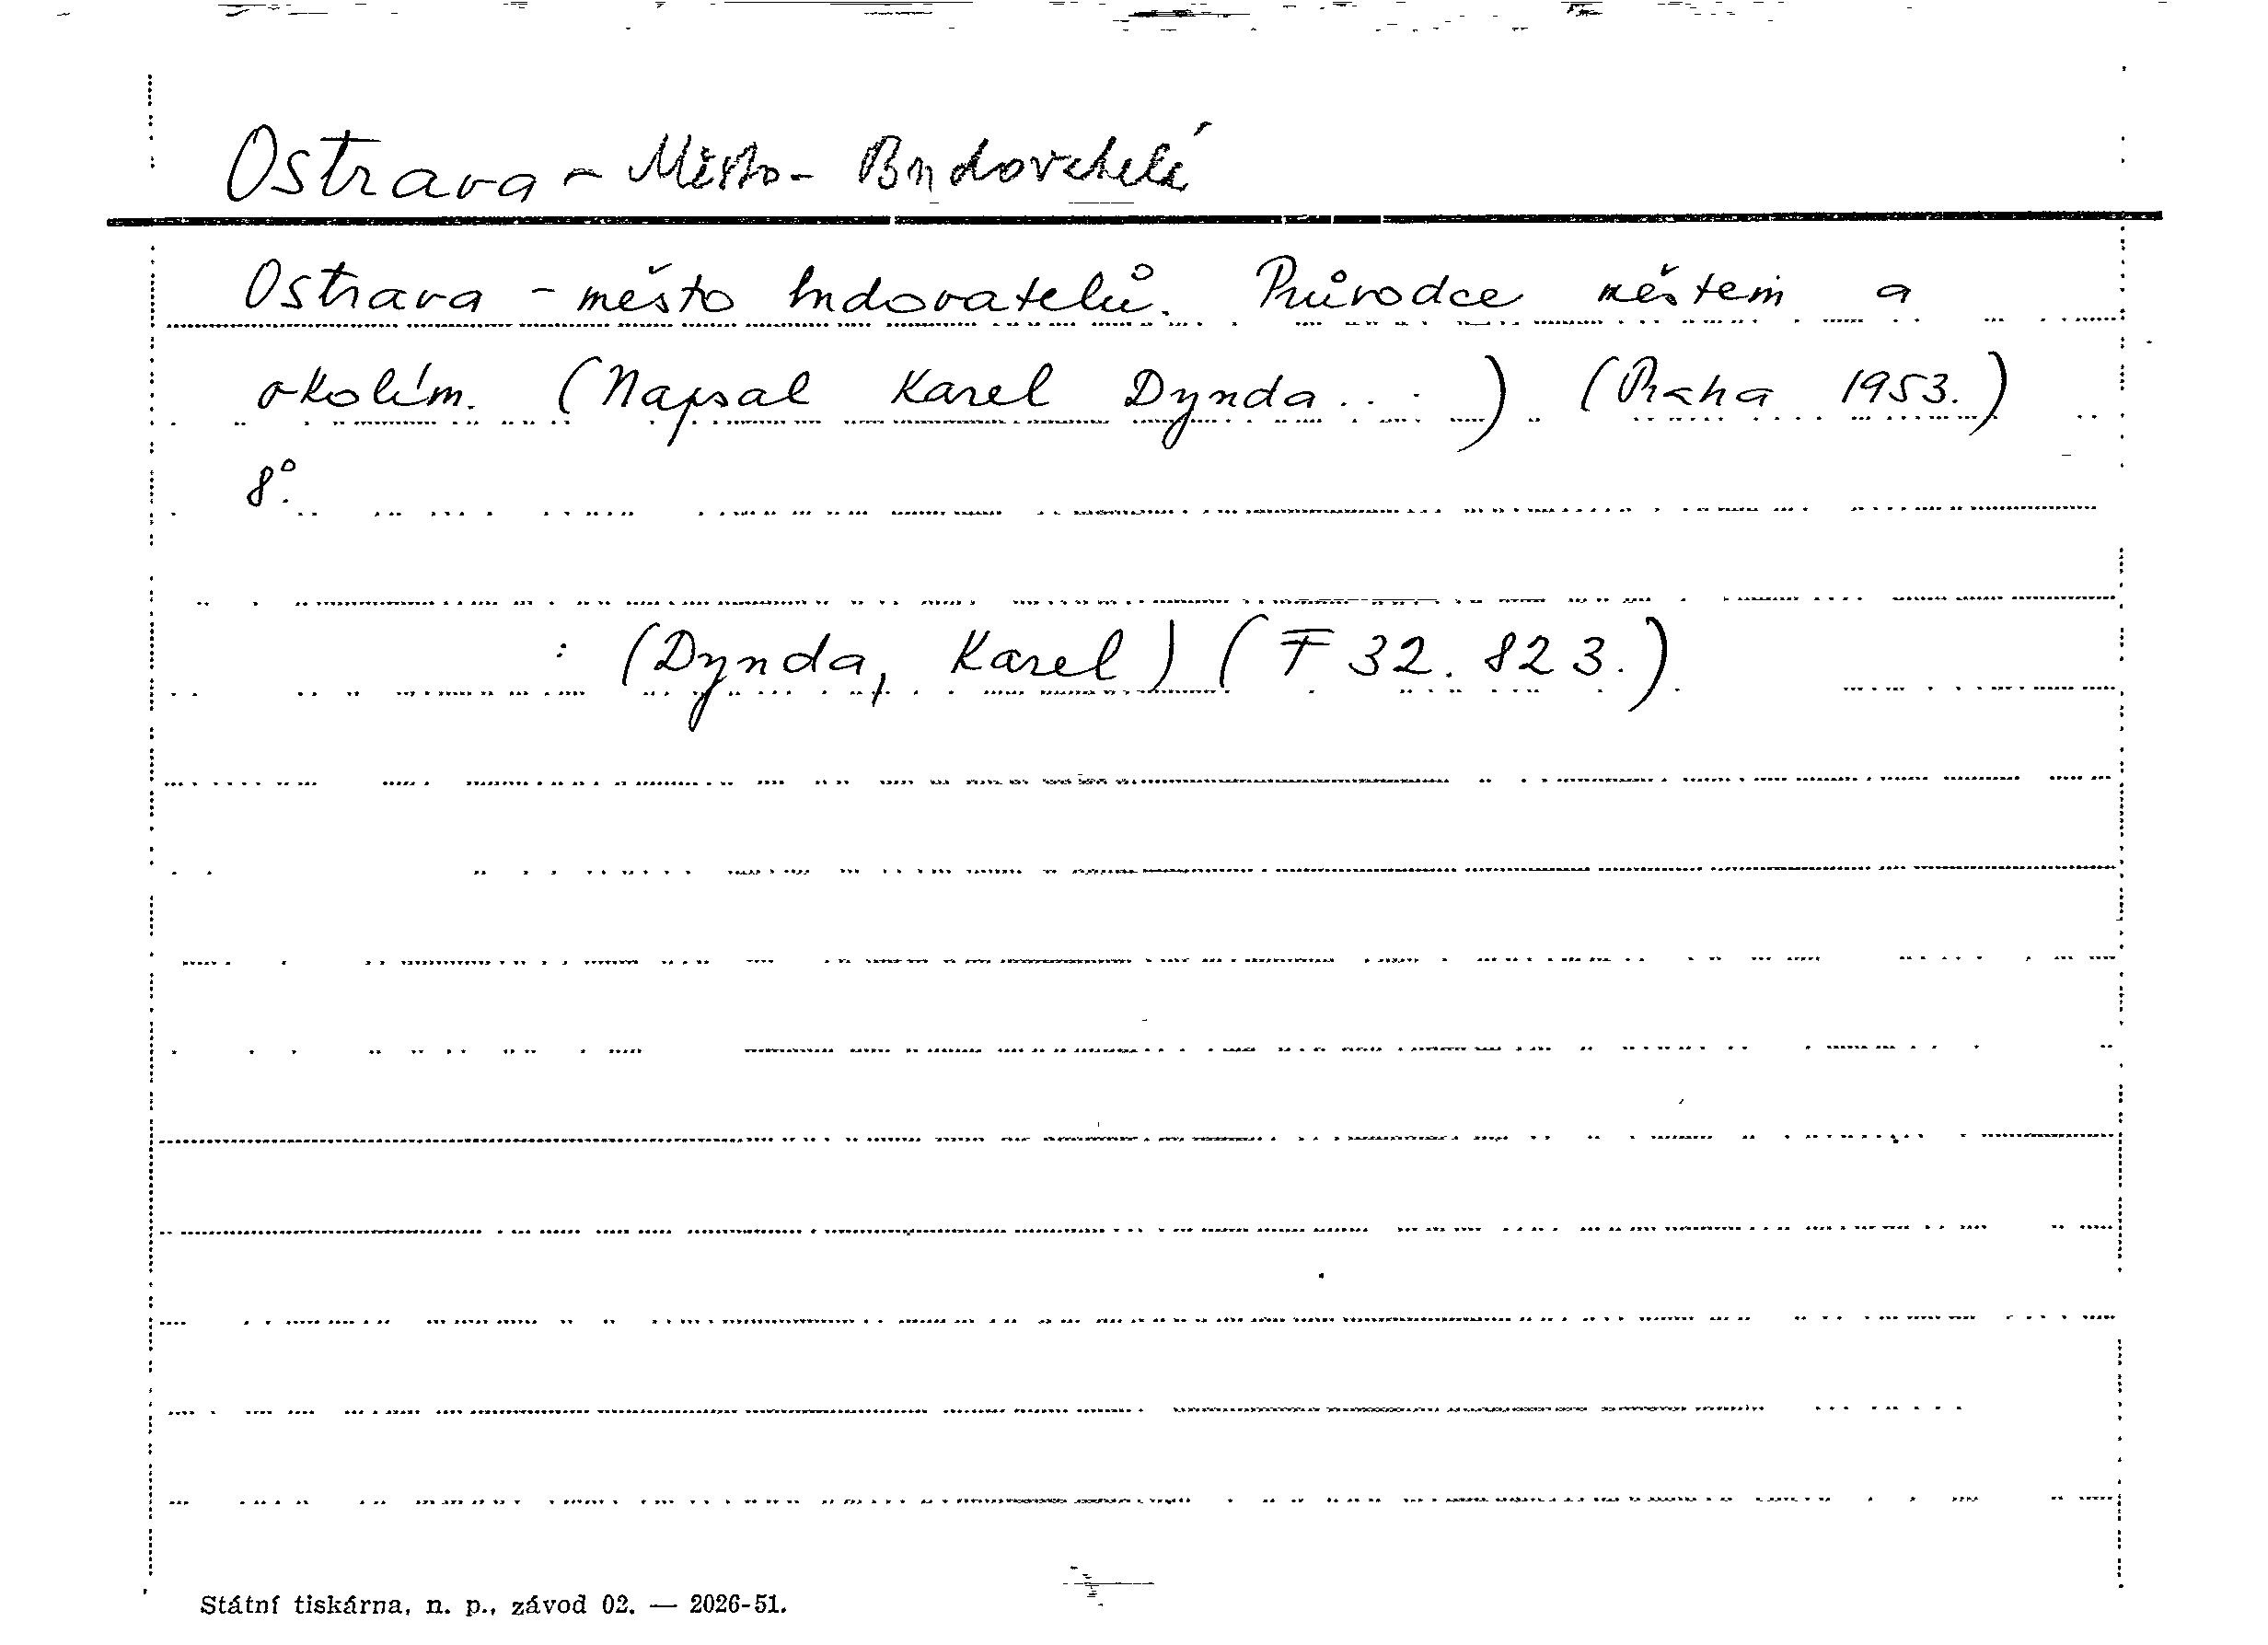 Ostrava - Město - Budovatelů
Ostrava - město budovatelů. Průvodce městem a
okolím. (Napsal Karel Dynda...) (Praha 1953.)
8°.
: (Dynda, Karel) (F 32.823.)
Státní tiskárna, n. p., závod 02. — 2026-51.